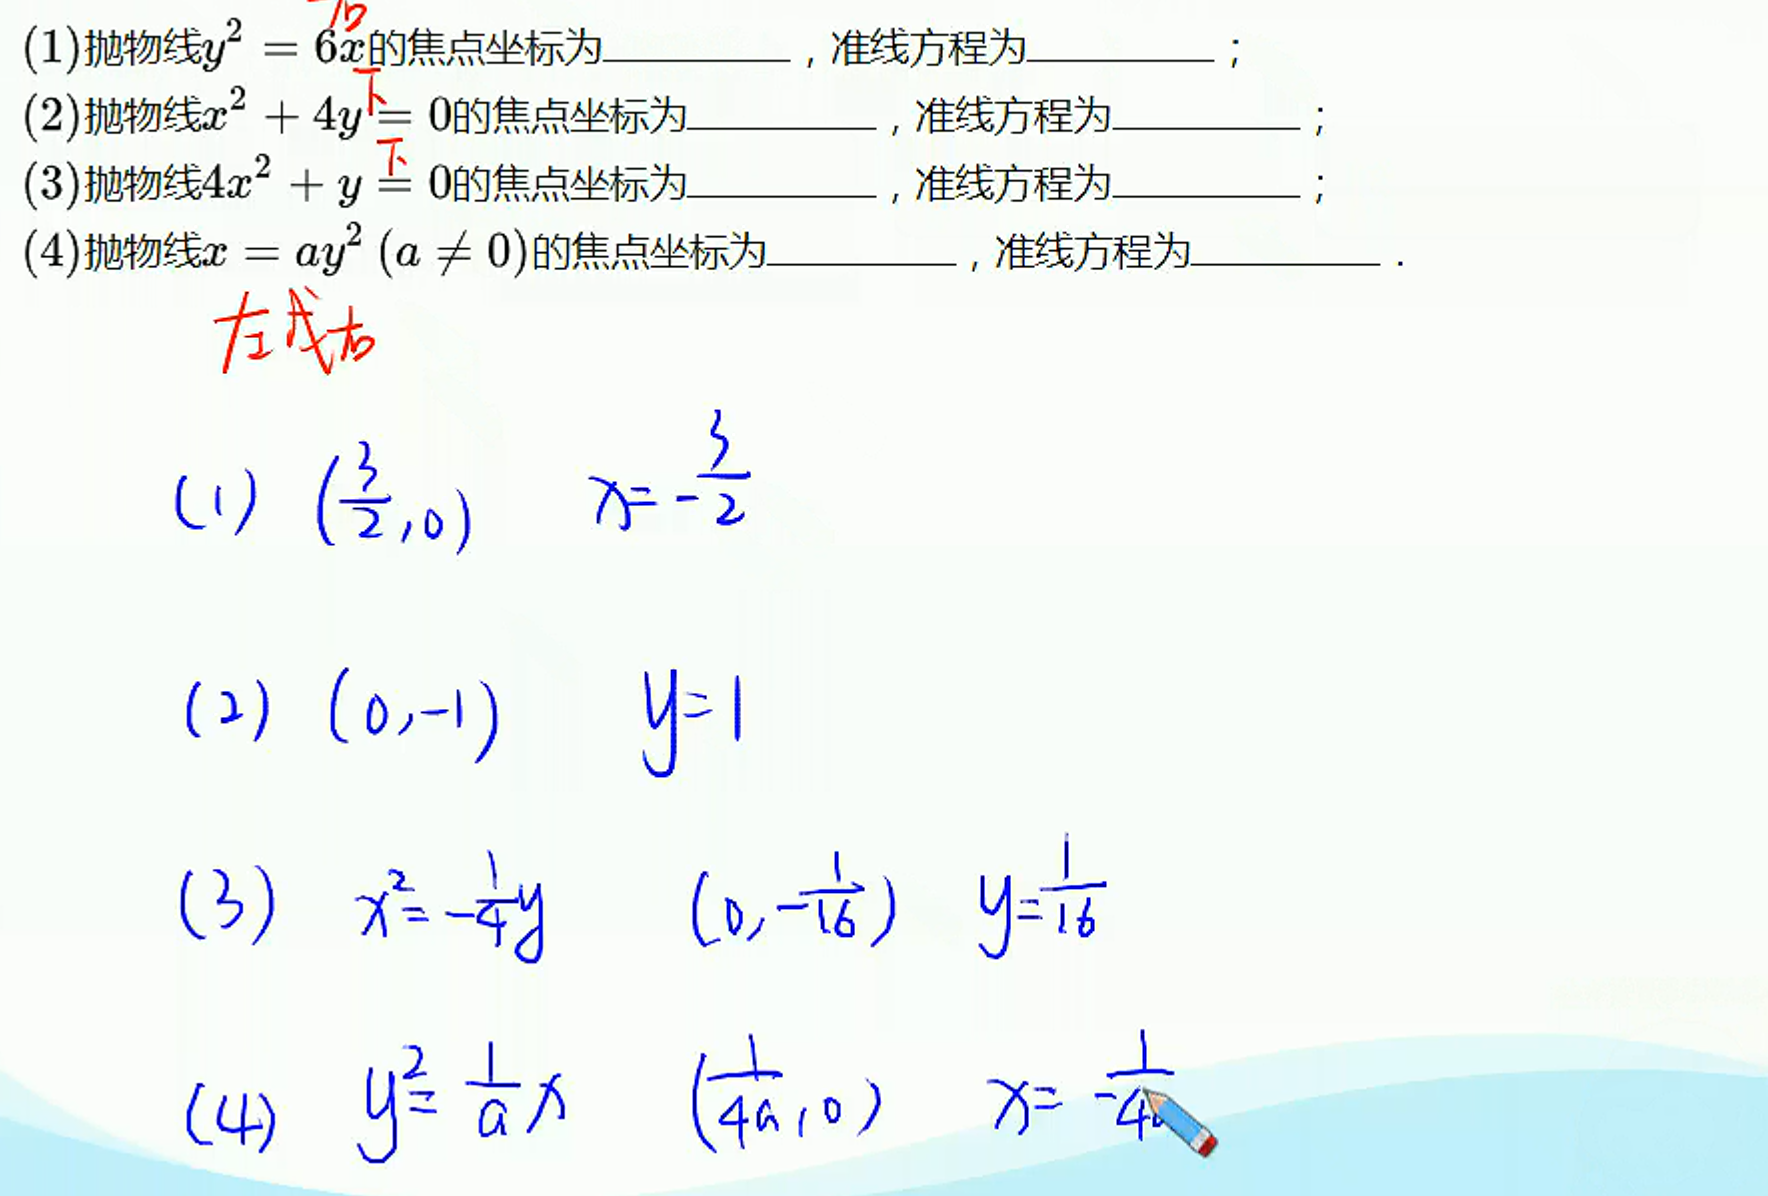 右
(1)抛物线y² = 6x的焦点坐标为________，准线方程为________；
下
(2)抛物线x² + 4y = 0的焦点坐标为________，准线方程为________；
下
(3)抛物线4x² + y = 0的焦点坐标为________，准线方程为________；
(4)抛物线x = ay² (a ≠ 0)的焦点坐标为________，准线方程为________．
左或右
(1) (3/2, 0) x = -3/2
(2) (0, -1) y = 1
(3) x² = -1/4 y (0, -1/16) y = 1/16
(4) y² = 1/a x (1/4a, 0) x = -1/4a